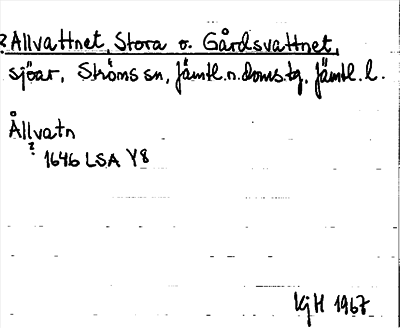 ? Allvattnet, Stora o. Gårdsvattnet,
sjöar, Ströms sn, Jämtl. n. doms.tg, Jämtl. l.
Ållvatn
? 1646 LSA Y8
KjH 1967